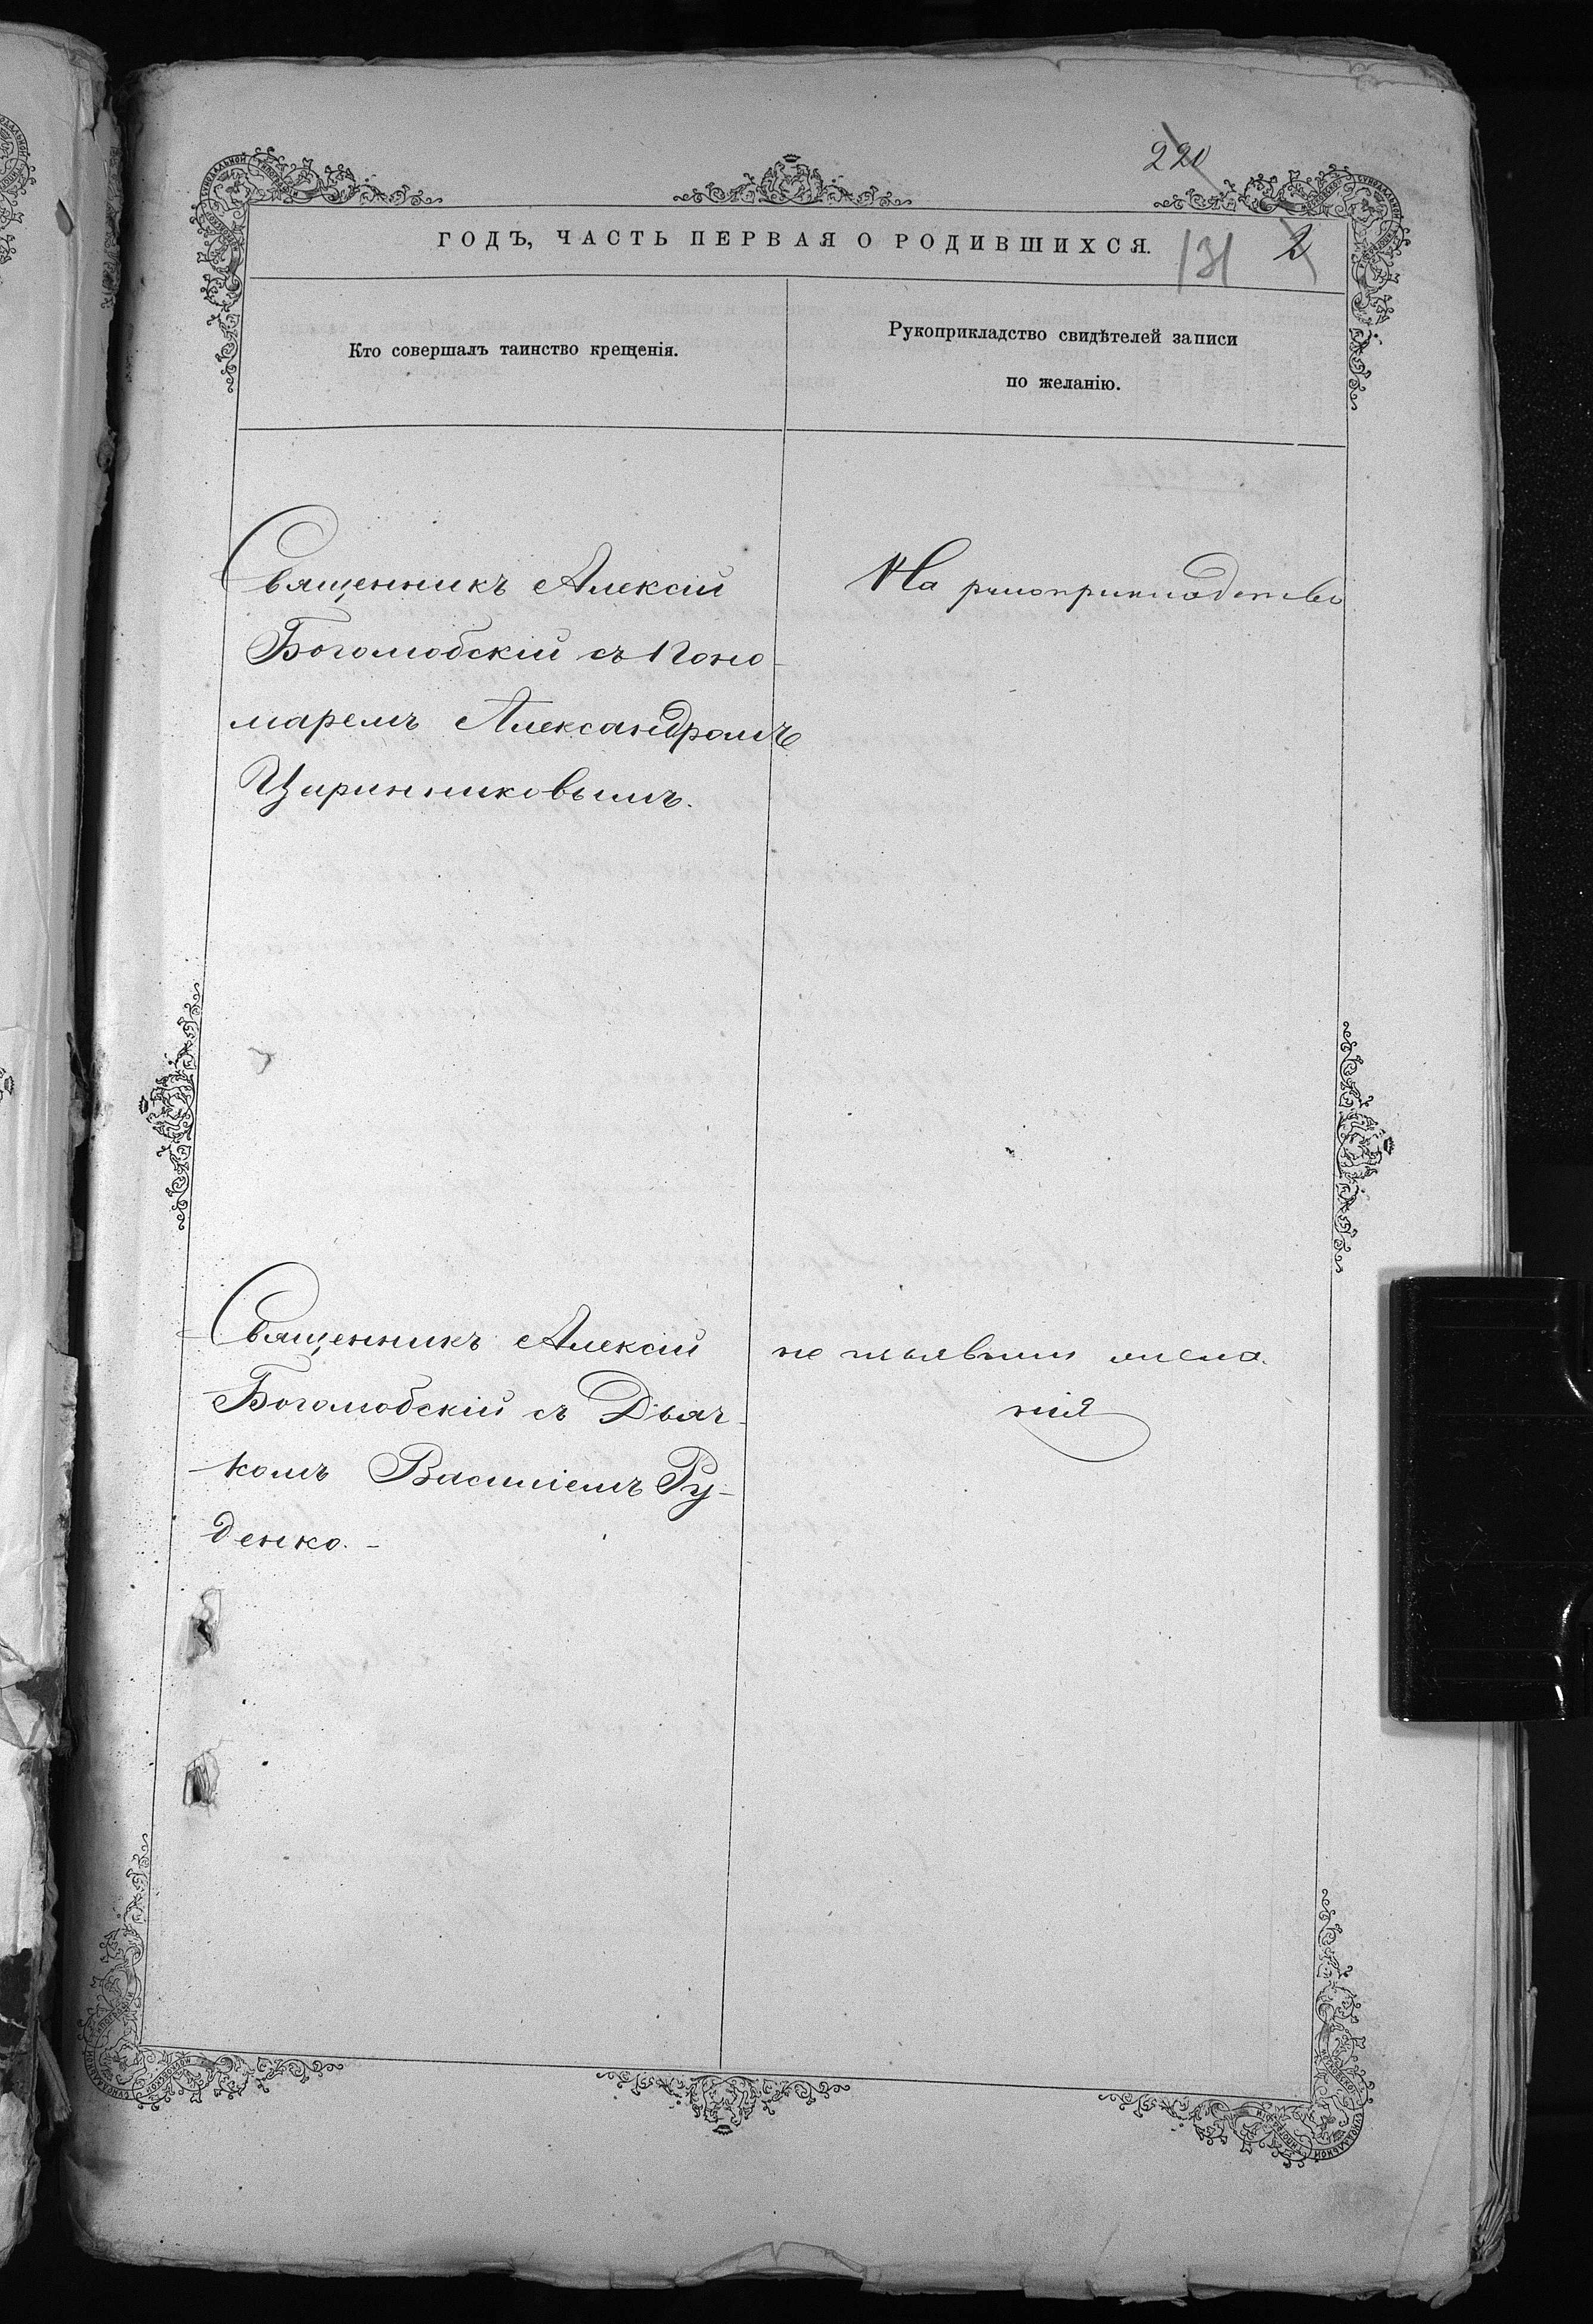 220
ГОДЪ, ЧАСТЬ ПЕРВАЯ О РОДИВШИХСЯ.
131 2
Кто совершалъ таинство крещенія.
Рукоприкладство свидѣтелей записи
по желанію.
Священникъ Алексій
Боголюбскій съ Поно-
маремъ Александромъ
Царинниковымъ.
На рукоприкладство
Священникъ Алексій
Боголюбскій съ Дьяч-
комъ Василіемъ Ру-
денко. -
не изъявили жела-
нія